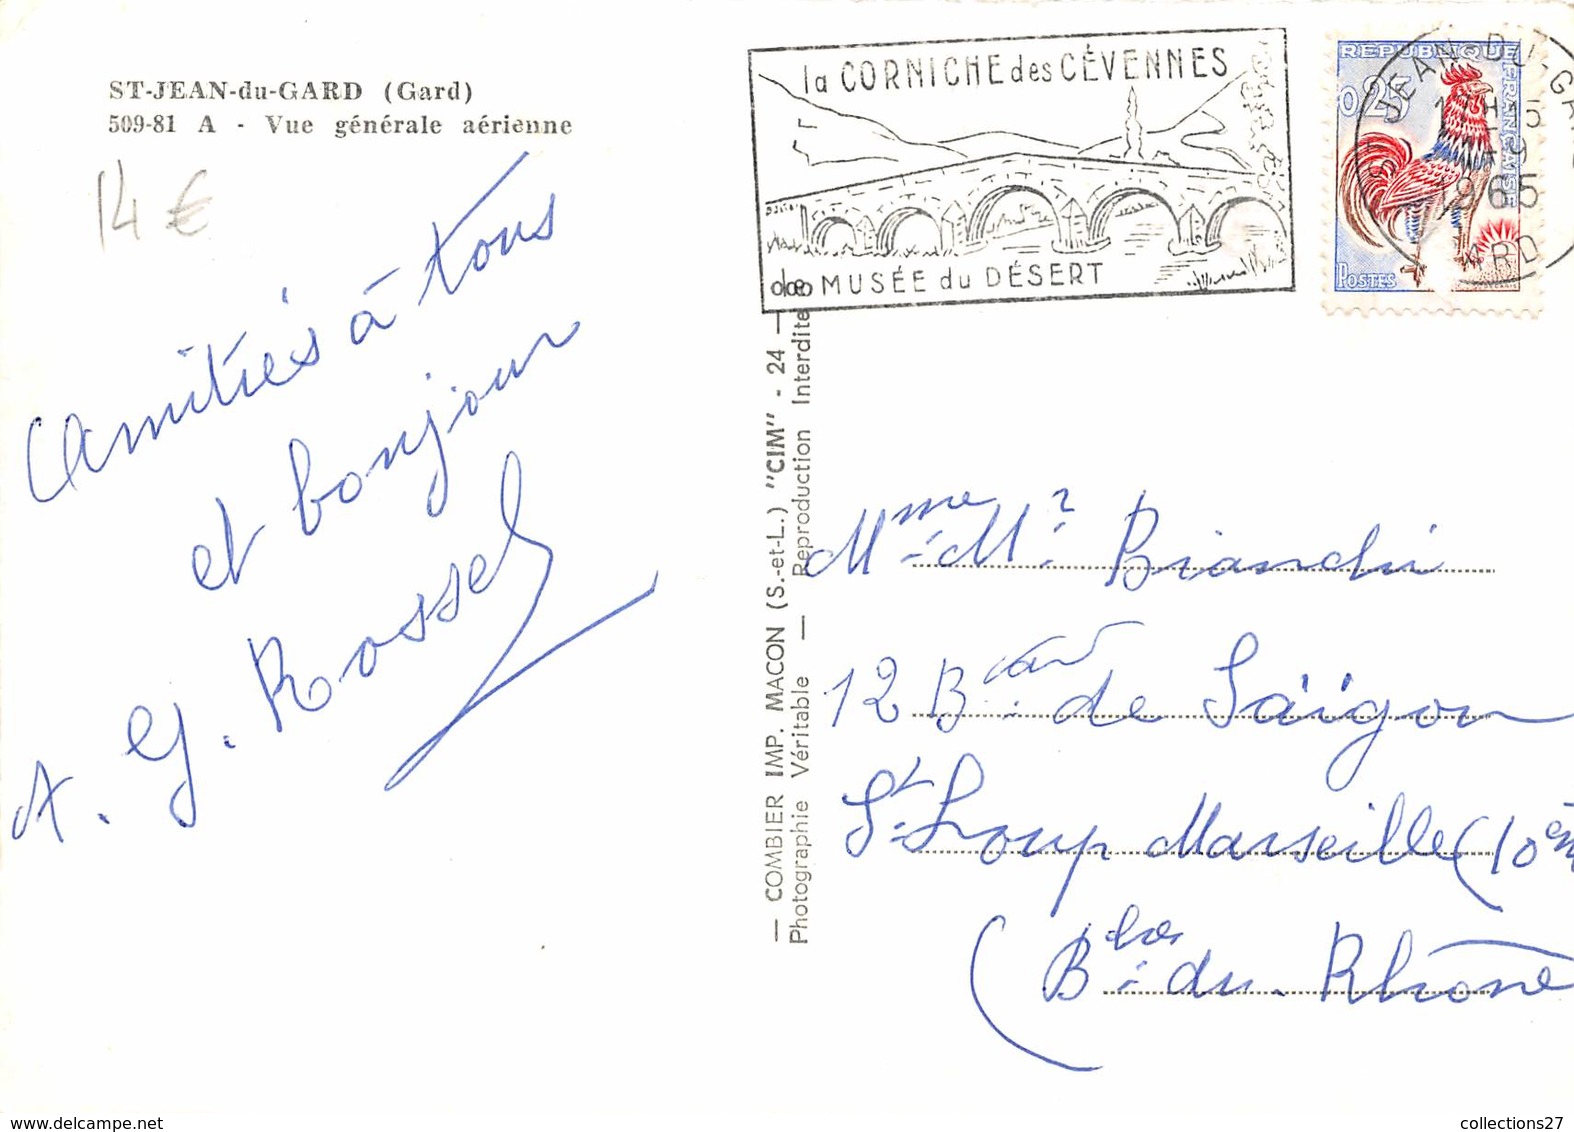 ST-JEAN-du-GARD (Gard)
509-81 A - Vue générale aérienne
14 €
Amitiés à tous
et bonjour
A. G. Rossel
la CORNICHE des CÉVENNES
MUSÉE du DÉSERT
RÉPUBLIQUE FRANÇAISE
0,25
POSTES
ST JEAN-DU-GARD
1965
GARD
— COMBIER IMP. MACON (S.-et-L.) "CIM" - 24 —
Photographie Véritable — Reproduction Interdite
Mme Mr Bianchi
12 Bard de Saïgon
St Loup Marseille (10èm
(Bches du Rhône
collections27